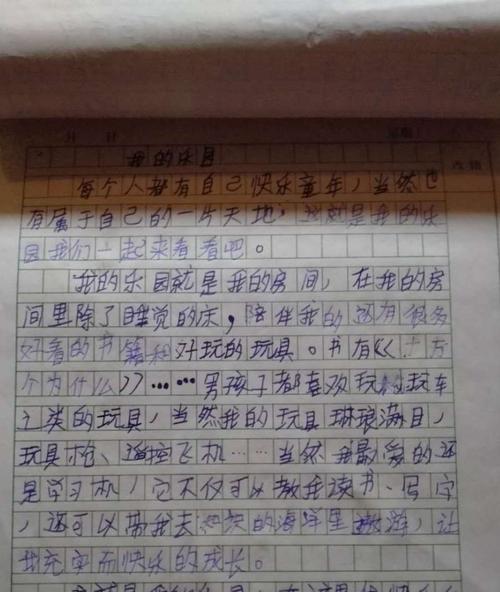 我的乐园
每个人都有自己快乐童年，当然也
有属于自己的一片天地，这就是我的乐
园我们一起来看看吧。
我的乐园就是我的房间，在我的房
间里除了睡觉的床，陪伴我的还有很多
好看的书籍和好玩的玩具。书有《《十万
个为什么》》……男孩子都喜欢玩枪玩车
之类的玩具，当然我的玩具琳琅满目，
玩具枪、遥控飞机……当然我最爱的还
是学习机，它不仅可以教我读书、写字
，还可以带我去知识的海洋里遨游，让
我充实而快乐的成长。